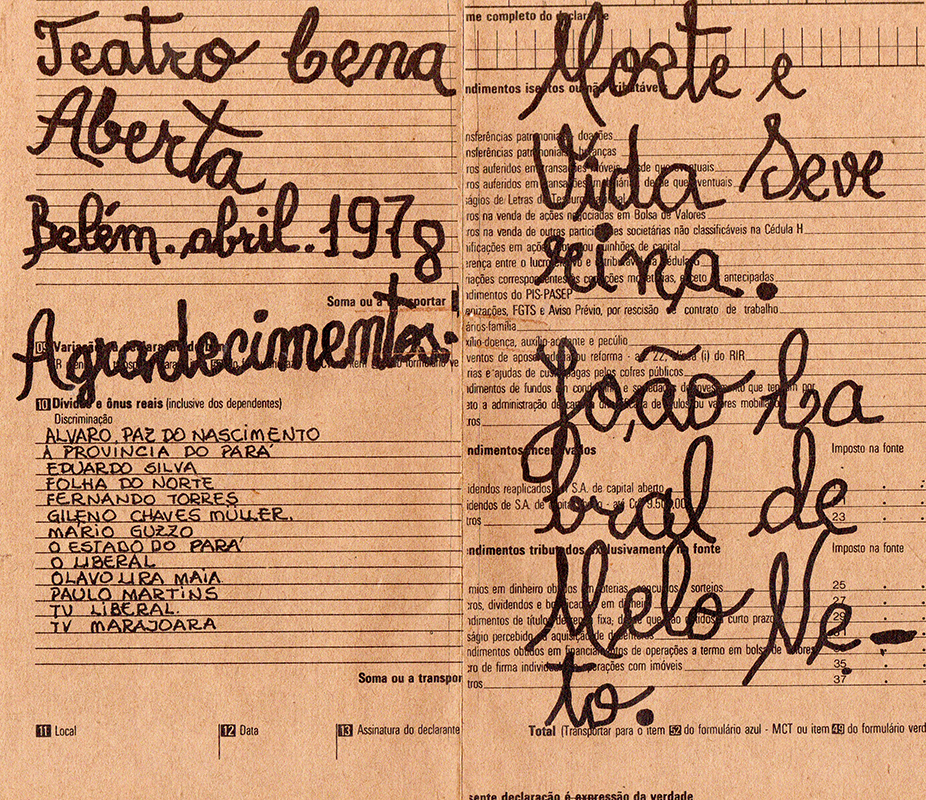 Teatro Cena
Aberta
Belém. abril. 1978
Soma ou a transportar
Agradecimentos.
09 Variação
10 Dívidas e ônus reais (inclusive dos dependentes)
Discriminação
ALVARO PAZ DO NASCIMENTO
A PROVINCIA DO PARÁ
EDUARDO SILVA
FOLHA DO NORTE
FERNANDO TORRES
GILENO CHAVES MÜLLER.
MÁRIO GUZZO
O ESTADO DO PARÁ
O LIBERAL
OLAVO LIRA MAIA
PAULO MARTINS
TV LIBERAL.
TV MARAJOARA
Soma ou a transpor
11 Local
12 Data
13 Assinatura do declarante
me completo do declarante
Morte e
ndimentos isentos ou não tributáveis
nsferências patrimoniais - doações
nsferências patrimoniais - heranças
Vida Seve
ros auferidos em transações imóveis, desde que eventuais
ros auferidos em transações mobiliárias, desde que eventuais
ságios de Letras do Tesouro Nacional
ros na venda de ações negociadas em Bolsa de Valores
ros na venda de outras participações societárias não classificáveis na Cédula H
rina.
nificações em ações, quotas ou quinhões de capital
erença entre o lucro
riações correspondentes às correções monetárias, exceto as antecipadas
ndimentos do PIS-PASEP
enizações, FGTS e Aviso Prévio, por rescisão de contrato de trabalho
ários-família
xílio-doença, auxílio-acidente e pecúlio
ventos de aposentadoria ou reforma - art 22, (i) do RIR
João Ca
rias e ajudas de custo pagas pelos cofres públicos
ndimentos de fundos em condomínio e sociedades de investimento que tenham por
eto a administração de carteira diversificada de títulos ou valores mobiliários
tros
ndimentos incentivados
Imposto na fonte
bral de
idendos reaplicados em S.A. de capital aberto
idendos de S.A. de capital aberto - até Cr$ 9.500,00
tros 23
ndimentos tributados exclusivamente na fonte
Imposto na fonte
Melo Ne-
mios em dinheiro obtidos em loterias, concursos, sorteios 25
ros, dividendos e bonificações em dinheiro 27
ndimentos de títulos de renda fixa, desde que não cedidos a curto prazo 29
ságio percebido na aquisição de debêntures 31
ndimentos obtidos em financiamentos de operações a termo em bolsa de valores
cro de firma individual e operações com imóveis 35
tros 37
to.
Total (Transportar para o item 52 do formulário azul - MCT ou item 49 do formulário verd
sente declaração é expressão da verdade